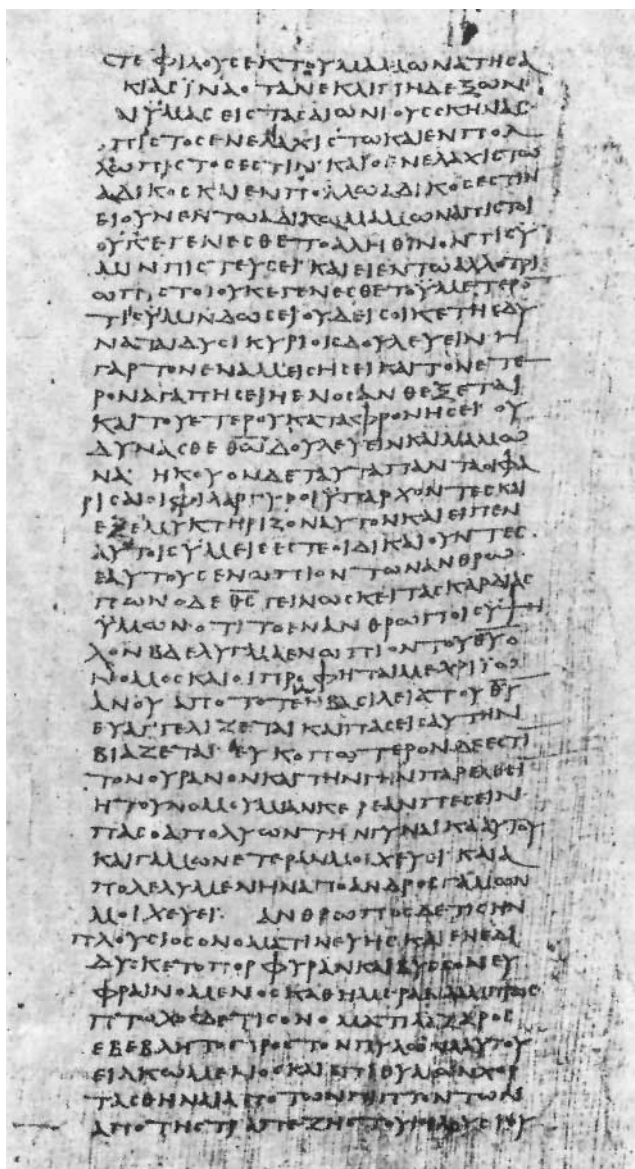 CΤΕΦΙΛΟΥCΕΚΤΟΥΜΑΜΩΝΑΤΗCΑ
ΚΙΑCΪΝΑΟΤΑΝΕΚΛΙΠΗΔΕΞΩΝ
ΑΙΫΜΑCΕΙCΤΑCΑΙΩΝΙΟΥCCΚΗΝΑC
ΠΙCΤΟCΕΝΕΛΑΧΙCΤΩΚΑΙΕΝΠΟΛ
ΛΩΠΙCΤΟCΕCΤΙΝ·ΚΑΙΟΕΝΕΛΑΧΙCΤΩ
ΑΔΙΚΟCΚΑΙΕΝΠΟΛΛΩΑΔΙΚΟCΕCΤΙΝ
ΕΙΟΥΝΕΝΤΩΑΔΙΚΩΜΑΜΩΝΑΠΙCΤΟΙ
ΟΥΚΕΓΕΝΕCΘΕΤΟΑΛΗΘΙΝΟΝΤΙCΫ
ΜΙΝΠΙCΤΕΥCΕΙ·ΚΑΙΕΙΕΝΤΩΑΛΛΟΤΡΙ
ΩΠΙCΤΟΙΟΥΚΕΓΕΝΕCΘΕΤΟΫΜΕΤΕΡΟ
ΤΙCΫΜΙΝΔΩCΕΙΟΥΔΕΙCΟΙΚΕΤΗCΔΥ
ΝΑΤΑΙΔΥCΙΚΥΡΙΟΙCΔΟΥΛΕΥΕΙΝ·Η
ΓΑΡΤΟΝΕΝΑΜΕΙCΗCΕΙΚΑΙΤΟΝΕΤΕ
ΡΟΝΑΓΑΠΗCΕΙΗΕΝΟCΑΝΘΕΞΕΤΑΙ
ΚΑΙΤΟΥΕΤΕΡΟΥΚΑΤΑΦΡΟΝΗCΕΙ·ΟΥ
ΔΥΝΑCΘΕΘ̅Ω̅ΔΟΥΛΕΥΕΙΝΚΑΙΜΑΜΩ
ΝΑ· ΗΚΟΥΟΝΔΕΤΑΥΤΑΠΑΝΤΑΟΙΦΑ
ΡΙCΑΙΟΙΦΙΛΑΡΓΥΡΟΙΫΠΑΡΧΟΝΤΕCΚΑΙ
ΕΞΕΜΥΚΤΗΡΙΖΟΝΑΥΤΟΝΚΑΙΕΙΠΕΝ
ΑΥΤΟΙCΫΜΕΙCΕCΤΕΟΙΔΙΚΑΙΟΥΝΤΕC
ΕΑΥΤΟΥCΕΝΩΠΙΟΝΤΩΝΑΝΘΡΩ
ΠΩΝΟΔΕΘ̅C̅ΓΕΙΝΩCΚΕΙΤΑCΚΑΡΔΙΑC
ΫΜΩΝ·ΟΤΙΤΟΕΝΑΝΘΡΩΠΟΙCΫΨΗ
ΛΟΝΒΔΕΛΥΓΜΑΕΝΩΠΙΟΝΤΟΥΘ̅Υ̅Ο
ΝΟΜΟCΚΑΙΟΙΠΡΟΦΗΤΑΙΜΕΧΡΙΪΩ
ΑΝΟΥ ΑΠΟΤΟΤΕΗΒΑCΙΛΕΙΑΤΟΥΘ̅Υ̅
ΕΥΑΓΓΕΛΙΖΕΤΑΙΚΑΙΠΑCΕΙCΑΥΤΗΝ
ΒΙΑΖΕΤΑΙ·ΕΥΚΟΠΩΤΕΡΟΝΔΕΕCΤΙ
ΤΟΝΟΥΡΑΝΟΝΚΑΙΤΗΝΓΗΝΠΑΡΕΛΘΕΙ
ΗΤΟΥΝΟΜΟΥΜΙΑΝΚΕΡΕΑΝΠΕCΕΙΝ
ΠΑCΟΑΠΟΛΥΩΝΤΗΝΓΥΝΑΙΚΑΑΥΤΟΥ
ΚΑΙΓΑΜΩΝΕΤΕΡΑΝΜΟΙΧΕΥΕΙ·ΚΑΙΑ
ΠΟΛΕΛΥΜΕΝΗΝΑΠΟΑΝΔΡΟCΓΑΜΩΝ
ΜΟΙΧΕΥΕΙ· ΑΝΘΡΩΠΟCΔΕΤΙCΗΝ
ΠΛΟΥCΙΟCΟΝΟΜΑΤΙΝΕΥΗCΚΑΙΕΝΕΔΙ
ΔΥCΚΕΤΟΠΟΡΦΥΡΑΝΚΑΙΒΥCCΟΝΕΥ
ΦΡΑΙΝΟΜΕΝΟCΚΑΘΗΜΕΡΑΝΛΑΜΠΡΩC
ΠΤΩΧΟCΔΕΤΙCΟΝΟΜΑΤΙΛΑΖΑΡΟC
ΕΒΕΒΛΗΤΟΠΡΟCΤΟΝΠΥΛΩΝΑΑΥΤΟΥ
ΕΙΛΚΩΜΕΝΟCΚΑΙΕΠΙΘΥΜΩΝΧΟΡ
ΤΑCΘΗΝΑΙΑΠΟΤΩΝΠΙΠΤΟΝΤΩΝ
ΑΠΟΤΗCΤΡΑΠΕΖΗCΤΟΥΠΛΟΥCΙΟΥ